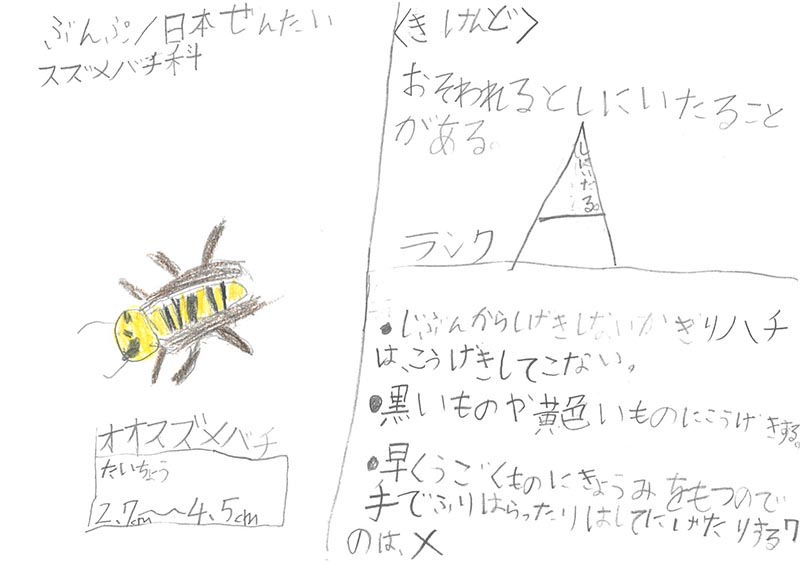 ぶんぷ/日本ぜんたい
スズメバチ科
オオスズメバチ
たいちょう
2.7cm〜〜4.5cm
〈きけんど〉
おそわれるとしにいたること
がある。
しにいたる。
ランク
●じぶんからしげきしないかぎりハチ
は、こうげきしてこない。
●黒いものや黄色いものにこうげきする。
●早くうごくものにきょうみをもつので
手でふりはらったりはしてにげたりする
のは、×